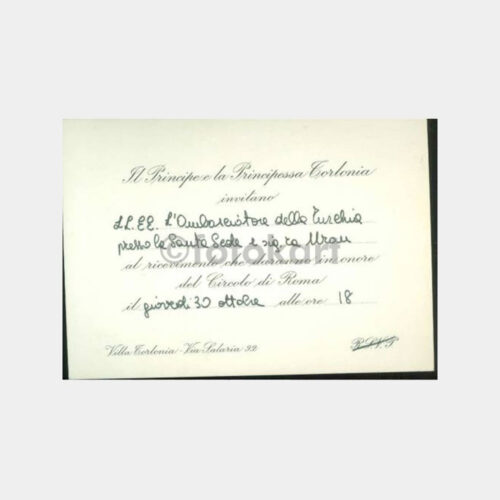 Il Principe e la Principessa Torlonia
invitano
LL.EE. l'Ambasciatore della Turchia
presso la Santa Sede e sig.ra Uran
al ricevimento che daranno in onore
del Circolo di Roma
il giovedì 30 ottobre alle ore 18
Villa Torlonia - Via Salaria 92
R.S.V.P.
© fotokart